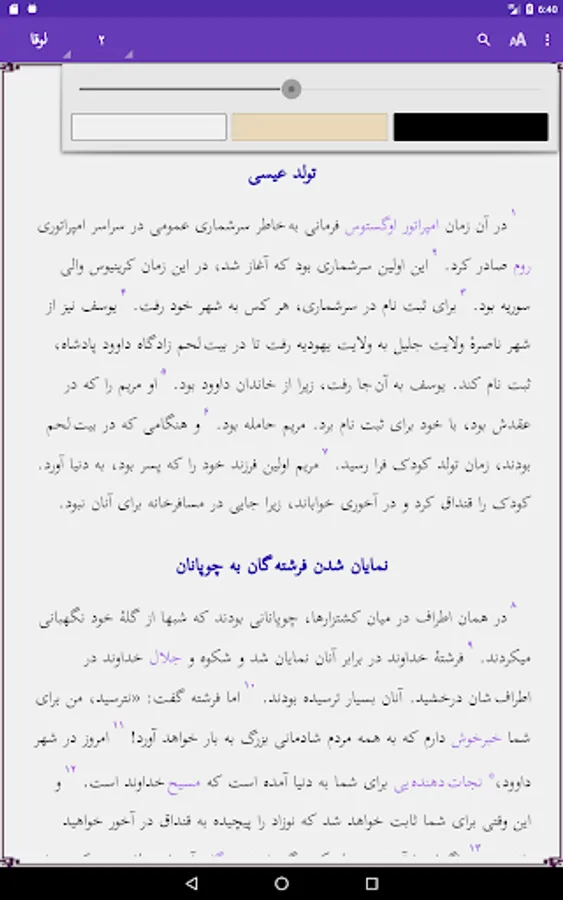 6:40
لوقا ۲ AA
تولد عیسی
۱ در آن زمان امپراتور اوگستوس فرمانی به خاطر سرشماری عمومی در سراسر امپراتوری
روم صادر کرد. ۲ این اولین سرشماری بود که آغاز شد، در این زمان کرینیوس والی
سوریه بود. ۳ برای ثبت نام در سرشماری، هر کس به شهر خود رفت. ۴ یوسف نیز از
شهر ناصرهٔ ولایت جلیل به ولایت یهودیه رفت تا در بیت‌لحم زادگاه داوود پادشاه،
ثبت نام کند. یوسف به آن‌جا رفت، زیرا از خاندان داوود بود. ۵ او مریم را که در
عقدش بود، با خود برای ثبت نام برد. مریم حامله بود. ۶ و هنگامی که در بیت‌لحم
بودند، زمان تولد کودک فرا رسید. ۷ مریم اولین فرزند خود را که پسر بود، به دنیا آورد.
کودک را قنداق کرد و در آخوری خواباند، زیرا جایی در مسافرخانه برای آنان نبود.
نمایان شدن فرشته‌گان به چوپانان
۸ در همان اطراف در میان کشتزارها، چوپانانی بودند که شبها از گلهٔ خود نگهبانی
میکردند. ۹ فرشتهٔ خداوند در برابر آنان نمایان شد و شکوه و جلال خداوند در
اطراف‌شان درخشید. آنان بسیار ترسیده بودند. ۱۰ اما فرشته گفت: «نترسید، من برای
شما خبرخوش دارم که به همه مردم شادمانی بزرگ به بار خواهد آورد! ۱۱ امروز در شهر
داوود،* نجات‌دهنده‌یی برای شما به دنیا آمده است که مسیح خداوند است. ۱۲ و
این وقتی برای شما ثابت خواهد شد که نوزاد را پیچیده به قنداق در آخور خواهید
۱۳